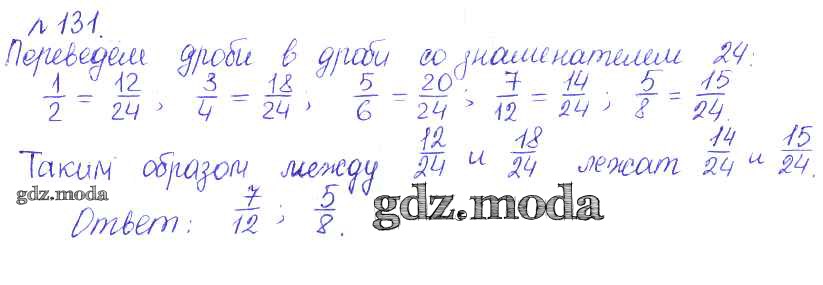 № 131.
Переведем дроби в дроби со знаменателем 24:
1/2 = 12/24; 3/4 = 18/24; 5/6 = 20/24; 7/12 = 14/24; 5/8 = 15/24.
Таким образом между 12/24 и 18/24 лежат 14/24 и 15/24.
gdz.moda
Ответ: 7/12; 5/8.
gdz.moda